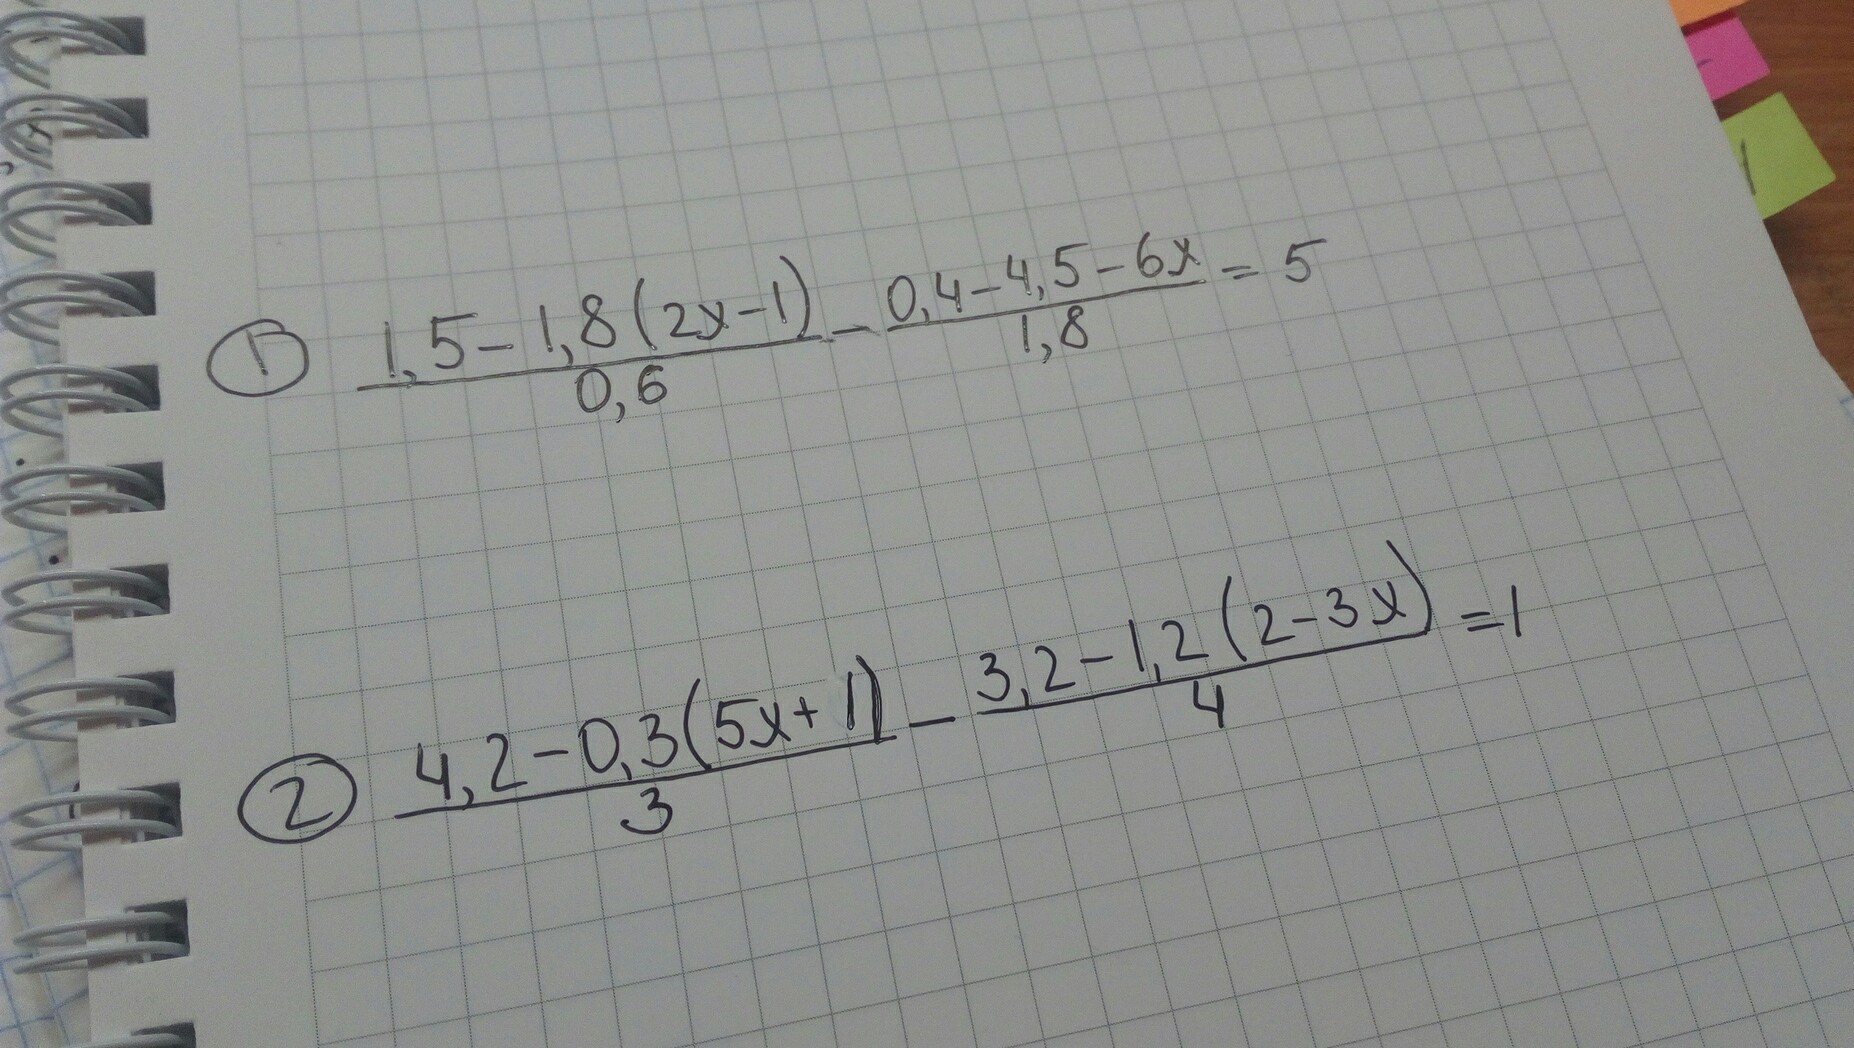 ① (1,5-1,8(2x-1))/0,6 - (0,4-4,5-6x)/1,8 = 5
② (4,2-0,3(5x+1))/3 - (3,2-1,2(2-3x))/4 = 1